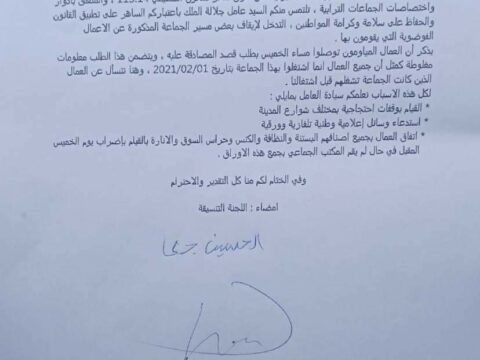 واختصاصات الجماعات الترابية ، نلتمس منكم السيد عامل جلالة الملك باعتباركم الساهر على تطبيق القانون
والحفاظ على سلامة وكرامة المواطنين ، التدخل لإيقاف بعض مسير الجماعة المذكورة عن الاعمال
الفوضوية التي يقومون بها .
يذكر أن العمال المياومون توصلوا مساء الخميس بطلب قصد المصادقة عليه ، ويتضمن هذا الطلب معلومات
مغلوطة كمثل أن جميع العمال انما اشتغلوا بهذا الجماعة بتاريخ 2021/02/01 ، وهنا نتسأل عن العمال
الذين كانت الجماعة تشغلهم قبل اشتغالنا .
لكل هذه الاسباب نعلمكم سيادة العامل بمايلي :
* القيام بوقفات احتجاجية بمختلف شوارع المدينة
* استدعاء وسائل إعلامية وطنية تلفازية وورقية
* اتفاق العمال بجميع اصنافهم البستنة والنظافة والكنس وحراس السوق والانارة بالقيام بإضراب يوم الخميس
المقبل في حال لم يقم المكتب الجماعي بجمع هذه الاوراق .
وفي الختام لكم منا كل التقدير والاحترام
امضاء : اللجنة التنسيقة
الحسين